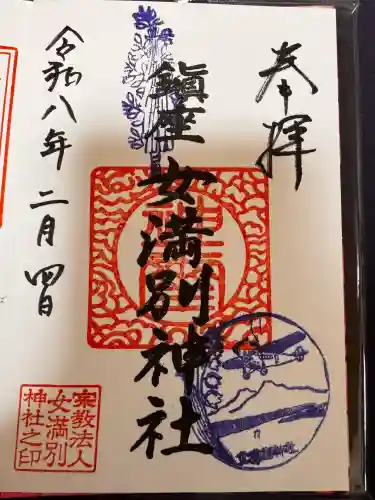 奉拝
鎮座 女満別神社
令和八年 二月 四日
宗教法人
女満別
神社之印